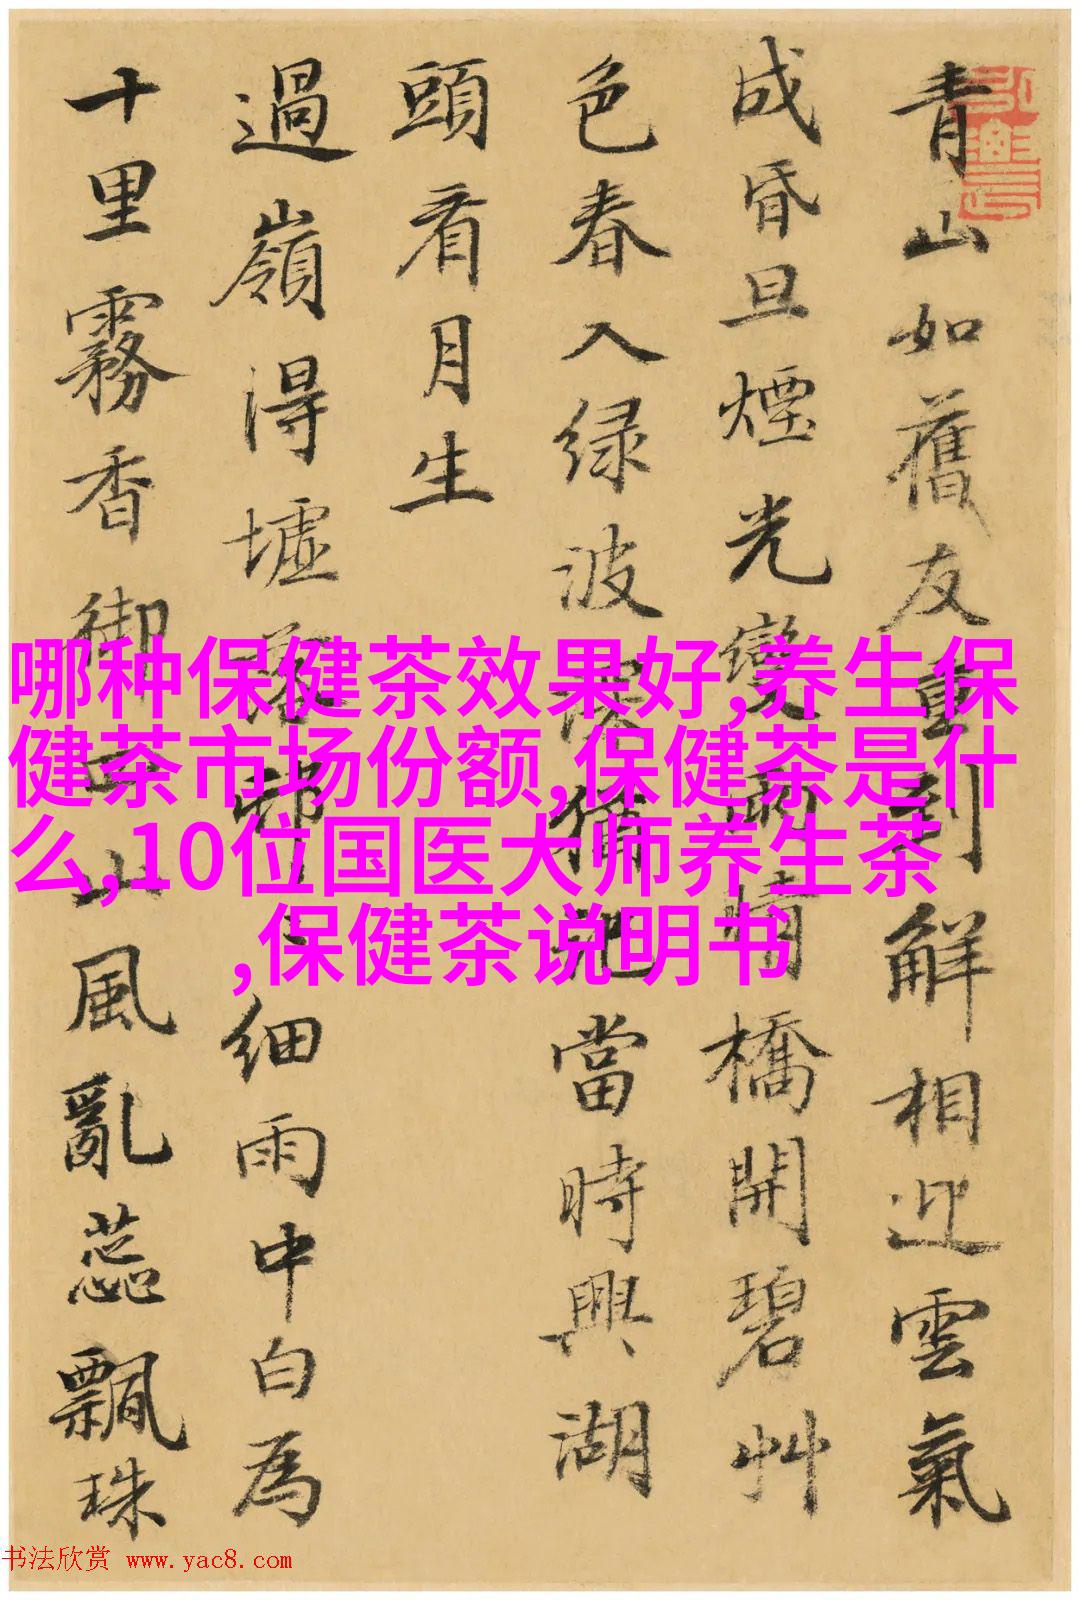 青山如舊友重到解相迎雲氣
成昏旦煙光變雨晴橋開碧艸
色春入绿波記當時興湖
頭看月生
過嶺得墟細雨中白為
十里霧香御山風亂蕊飄珠
哪种保健茶效果好,养生保
健茶市场份额,保健茶是什
么,10位国医大师养生茶
,保健茶说明书
书法欣赏 www.yac8.com